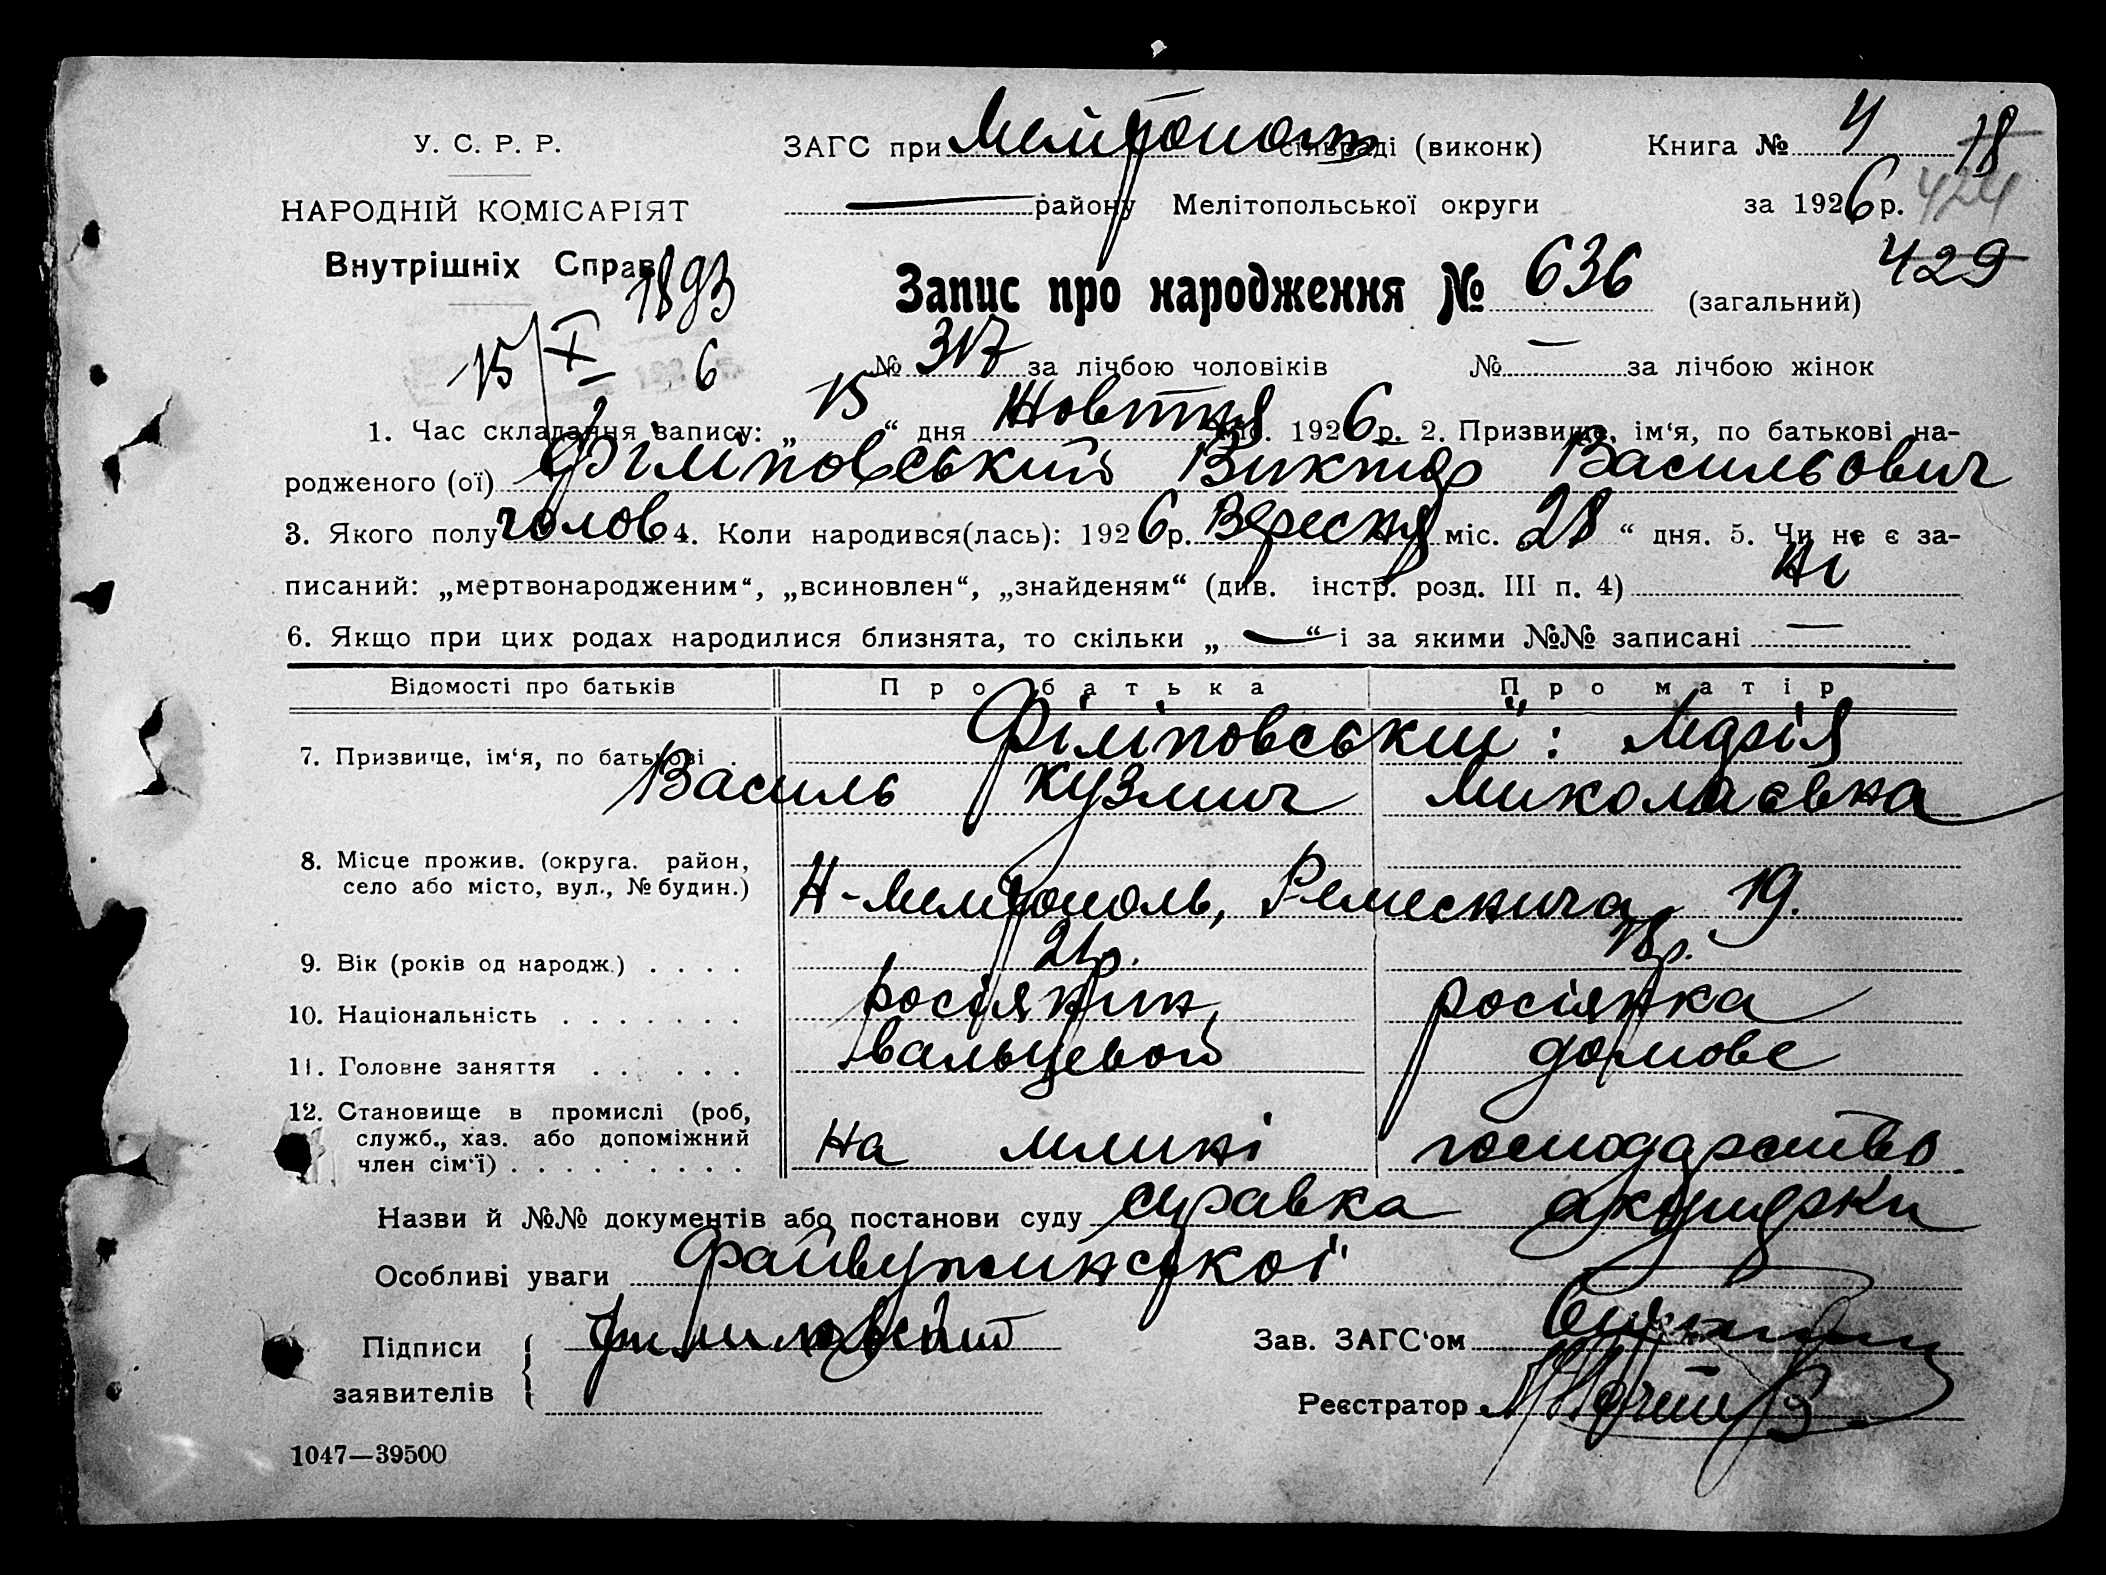 У. С. Р. Р.
НАРОДНІЙ КОМІСАРІЯТ
Внутрішніх Справ
1893
15/X 6
ЗАГС при сільраді (виконк)
— району Мелітопольської округи
Книга № 4 18
за 1926 р. 424
429
Запис про народження № 636 (загальний)
№ 317 за лічбою чоловіків № — за лічбою жінок
1. Час складання запису: „ 15 “ дня Жовтня міс. 1926 р. 2. Призвище, ім‘я, по батькові на-
родженого (ої) Філіповський Виктор Васильович
3. Якого полу чолов 4. Коли народився(лась): 1926 р. Вересня міс. „ 28 “ дня. 5. Чи не є за-
писаний: „мертвонародженим“, „всиновлен“, „знайденям“ (див. інстр. розд. III п. 4) Ні
6. Якщо при цих родах народилися близнята, то скільки „ — “ і за якими №№ записані —
Відомості про батьків Про батька Про матір
7. Призвище, ім‘я, по батькові . Філіповський: Марія
Василь Кузмич Миколаєвна
8. Місце прожив. (округа. район,
село або місто, вул., № будин.) Н-Мелітополь, 19.
9. Вік (років од народж.) . . . . 21р. 18р.
10. Національність . . . . . . . росіянин, росіянка
11. Головне заняття . . . . . . вальцевой домове
12. Становище в промислі (роб,
служб., хаз. або допоміжний
член сім‘ї) . . . . . . . . . на млині господарство
Назви й №№ документів або постанови суду справка акушерки
Особливі уваги
Підписи
заявителів
Зав. ЗАГС‘ом
Реєстратор
1047—39500